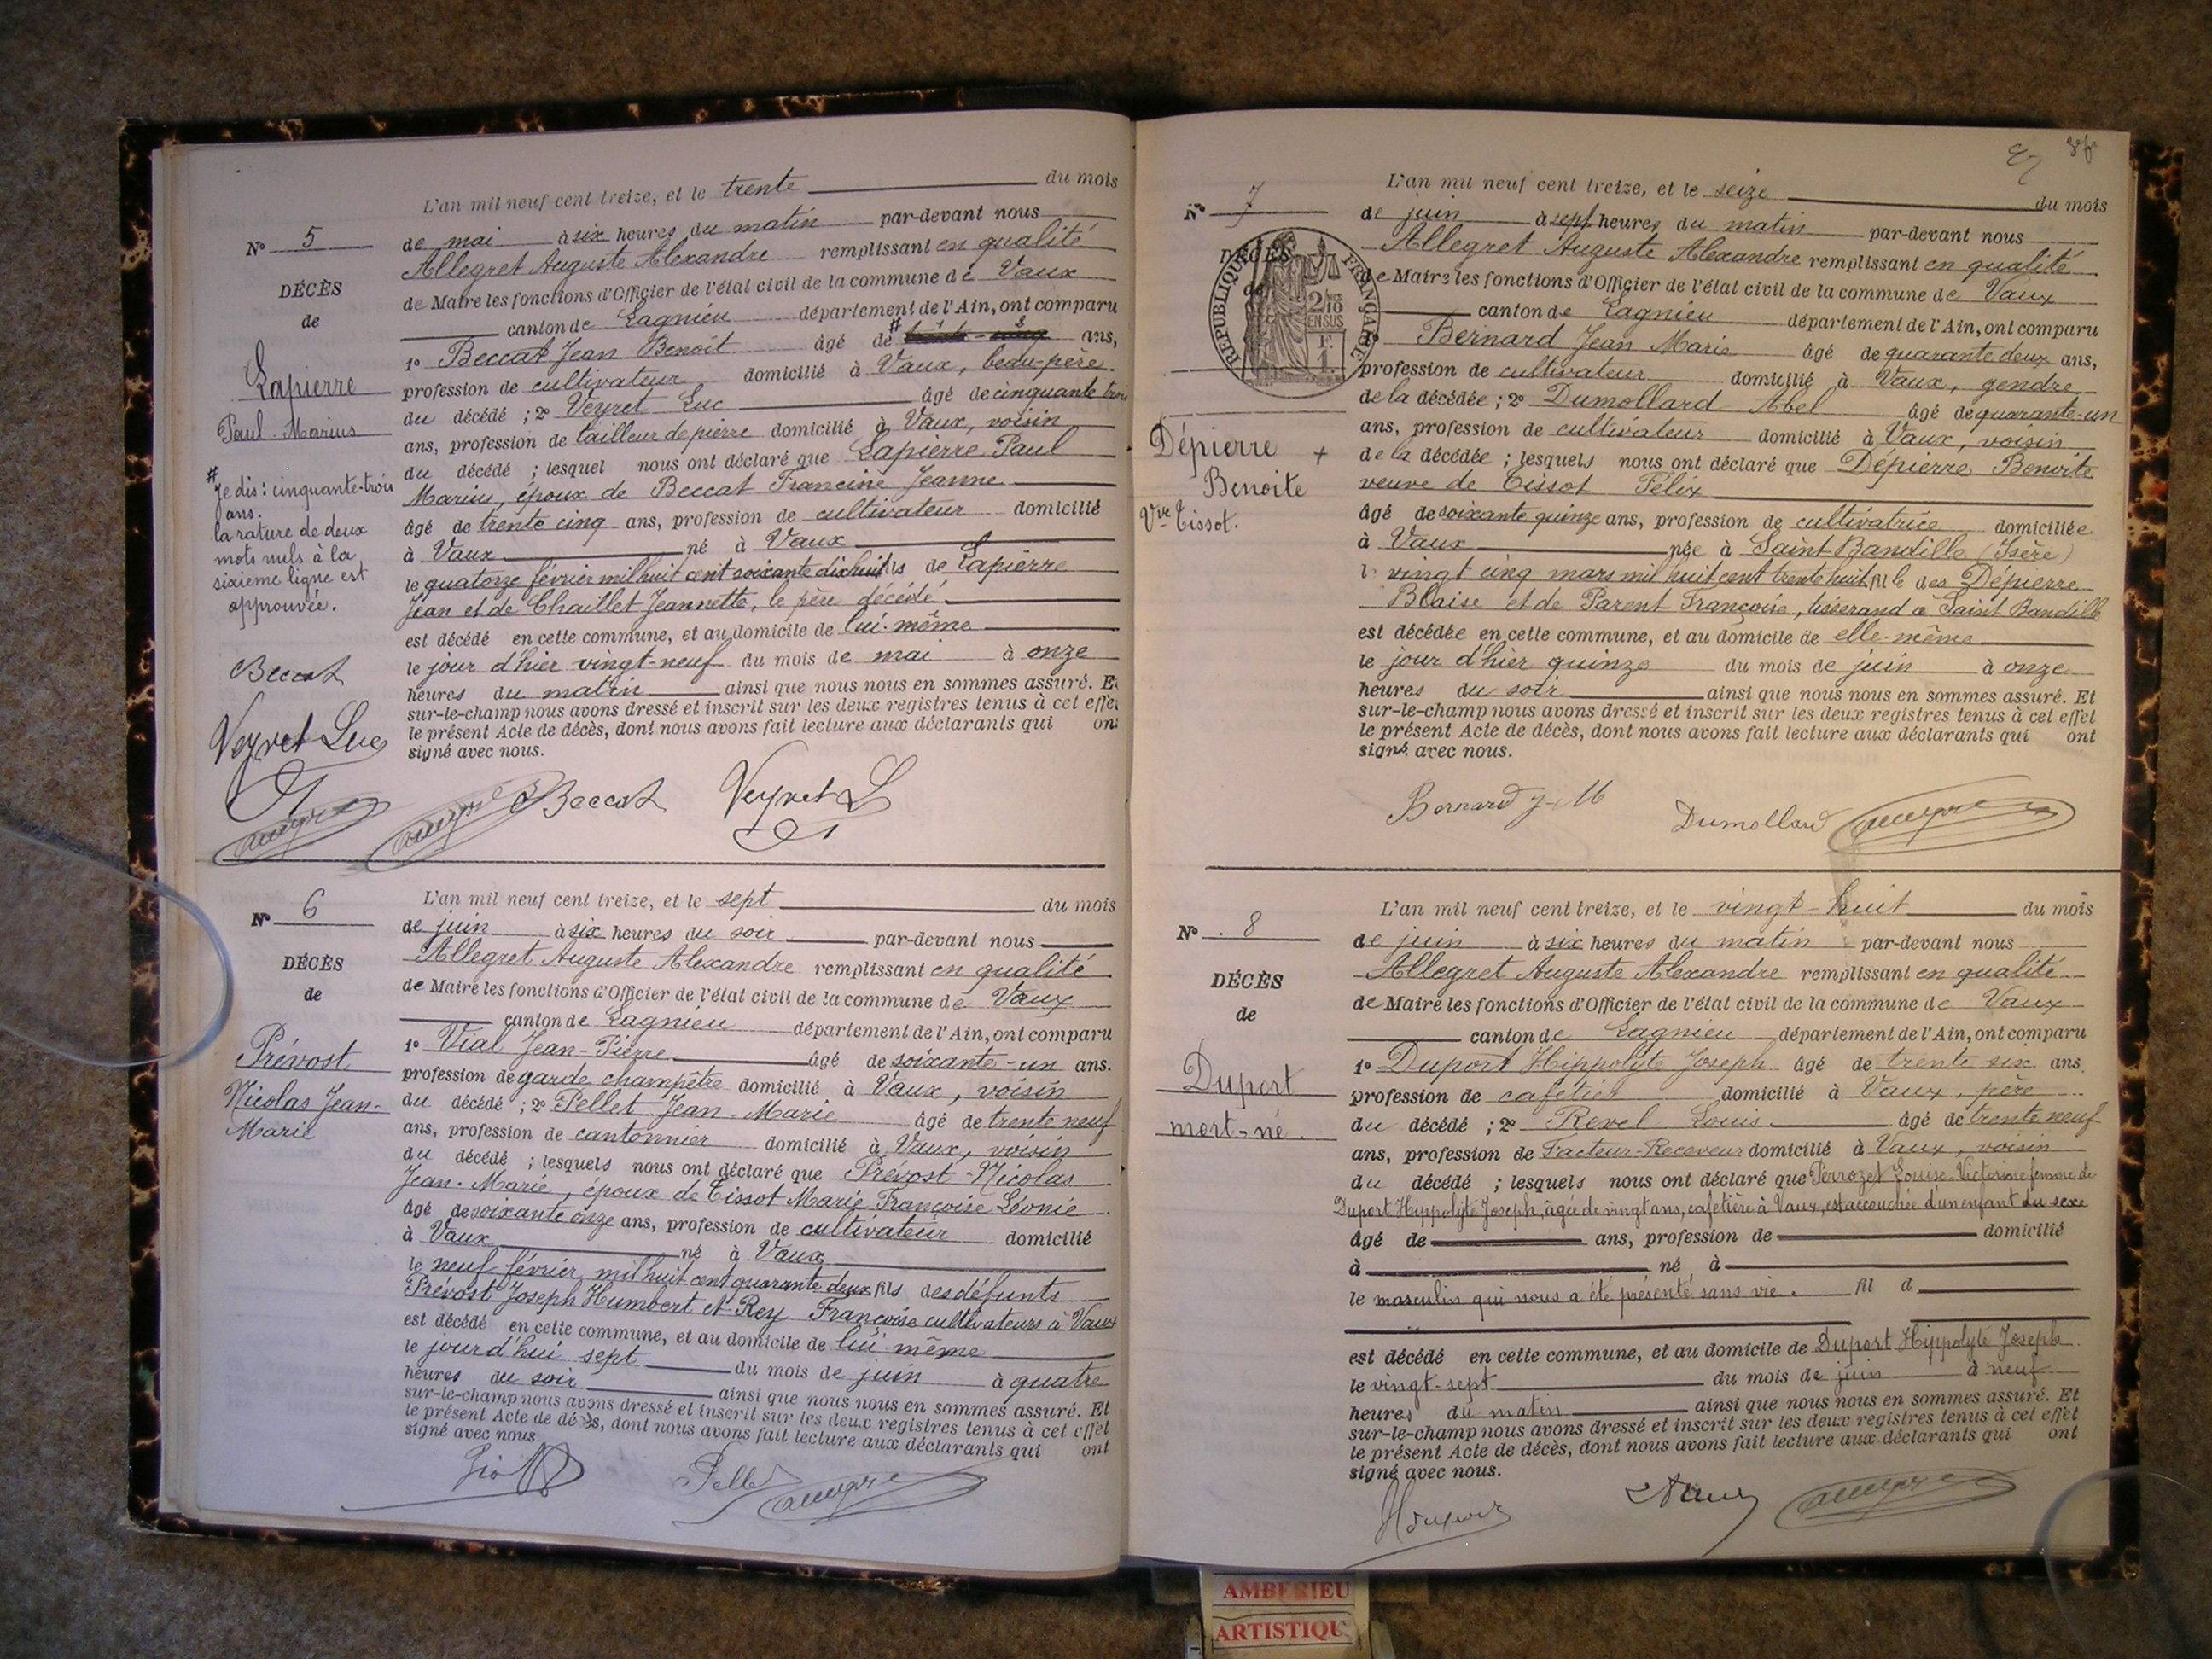 L'an mil neuf cent treize, et le trente du mois
Nº 5
de mai à six heures du matin par-devant nous
Allegret Auguste Alexandre remplissant en qualité
DÉCÈS
de Maire les fonctions d'Officier de l'état civil de la commune de Vaux
de
canton de Lagnieu département de l'Ain, ont comparu
1º Beccat Jean Benoit âgé de # ans,
Lapierre
profession de cultivateur domicilié à Vaux, beau-père
du décédé ; 2º Veyret Luc âgé de cinquante trois
Paul-Marius
ans, profession de tailleur de pierre domicilié à Vaux, voisin
du décédé ; lesquel nous ont déclaré que Lapierre Paul
Marius, époux de Beccat Francine Jeanne
# Je dis : cinquante-trois
ans.
la rature de deux
mots nuls à la
sixième ligne est
approuvée.
âgé de trente cinq ans, profession de cultivateur domicilié
à Vaux né à Vaux
le quatorze février mil huit cent soixante dix huit fils de Lapierre
Jean et de Chaillet Jeannette, le père décédé
est décédé en cette commune, et au domicile de lui-même
le jour d'hier vingt-neuf du mois de mai à onze
heures du matin ainsi que nous nous en sommes assuré. Et
sur-le-champ nous avons dressé et inscrit sur les deux registres tenus à cet effet
le présent Acte de décès, dont nous avons fait lecture aux déclarants qui ont
signé avec nous.
Beccat
Veyret Luc
Beccat Veyret L
L'an mil neuf cent treize, et le sept du mois
Nº 6
de juin à six heures du soir par-devant nous
Allegret Auguste Alexandre remplissant en qualité
DÉCÈS
de Maire les fonctions d'Officier de l'état civil de la commune de Vaux
de
canton de Lagnieu département de l'Ain, ont comparu
1º Vial Jean-Pierre âgé de soixante-un ans.
Prévost
profession de garde champêtre domicilié à Vaux, voisin
Nicolas Jean-
du décédé ; 2º Pellet Jean-Marie âgé de trente neuf
Marie
ans, profession de cantonnier domicilié à Vaux, voisin
du décédé ; lesquels nous ont déclaré que Prévost Nicolas
Jean-Marie, époux de Tissot Marie Françoise Léonie
âgé de soixante onze ans, profession de cultivateur domicilié
à Vaux né à Vaux
le neuf février mil huit cent quarante deux fils des défunts
Prévost Joseph Humbert et Rey Françoise cultivateurs à Vaux
est décédé en cette commune, et au domicile de lui même
le jourd'hui sept du mois de juin à quatre
heures du soir ainsi que nous nous en sommes assuré. Et
sur-le-champ nous avons dressé et inscrit sur les deux registres tenus à cet effet
le présent Acte de décès, dont nous avons fait lecture aux déclarants qui ont
signé avec nous
Pellet
L'an mil neuf cent treize, et le seize du mois
Nº 7
de juin à sept heures du matin par-devant nous
DÉCÈS
de
RÉPUBLIQUE FRANÇAISE
Allegret Auguste Alexandre remplissant en qualité
de Maire les fonctions d'Officier de l'état civil de la commune de Vaux
canton de Lagnieu département de l'Ain, ont comparu
1º Bernard Jean Marie âgé de quarante deux ans,
profession de cultivateur domicilié à Vaux, gendre
de la décédée ; 2º Dumollard Abel âgé de quarante-un
ans, profession de cultivateur domicilié à Vaux, voisin
Dépierre +
Benoite
Vve Tissot.
de la décédée ; lesquels nous ont déclaré que Dépierre Benoite
veuve de Tissot Félix
âgé de soixante quinze ans, profession de cultivatrice domiciliée
à Vaux née à Saint Bandille (Isère)
le vingt cinq mars mil huit cent trente huit fille des Dépierre
Blaise et de Parent Françoise, tisserand à Saint Bandille
est décédée en cette commune, et au domicile de elle-même
le jour d'hier quinze du mois de juin à onze
heures du soir ainsi que nous nous en sommes assuré. Et
sur-le-champ nous avons dressé et inscrit sur les deux registres tenus à cet effet
le présent Acte de décès, dont nous avons fait lecture aux déclarants qui ont
signé avec nous.
Bernard J-M
Dumollard
L'an mil neuf cent treize, et le vingt-huit du mois
Nº 8
de juin à six heures du matin par-devant nous
Allegret Auguste Alexandre remplissant en qualité
DÉCÈS
de Maire les fonctions d'Officier de l'état civil de la commune de Vaux
de
canton de Lagnieu département de l'Ain, ont comparu
1º Duport Hippolyte Joseph âgé de trente six ans.
Duport
profession de cafetier domicilié à Vaux, père
mort-né.
du décédé ; 2º Revel Louis âgé de trente neuf
ans, profession de Facteur-Receveur domicilié à Vaux, voisin
du décédé ; lesquels nous ont déclaré que Perrozet Louise Victorine femme de
Duport Hyppolyte Joseph, âgée de vingt ans, cafetière à Vaux, est accouchée d'un enfant du sexe
âgé de ans, profession de domicilié
à né à
le masculin qui nous a été présenté sans vie. fil d
est décédé en cette commune, et au domicile de Duport Hippolyte Joseph
le vingt-sept du mois de juin à neuf
heures du matin ainsi que nous nous en sommes assuré. Et
sur-le-champ nous avons dressé et inscrit sur les deux registres tenus à cet effet
le présent Acte de décès, dont nous avons fait lecture aux déclarants qui ont
signé avec nous.
AMBERIEU
ARTISTIQU